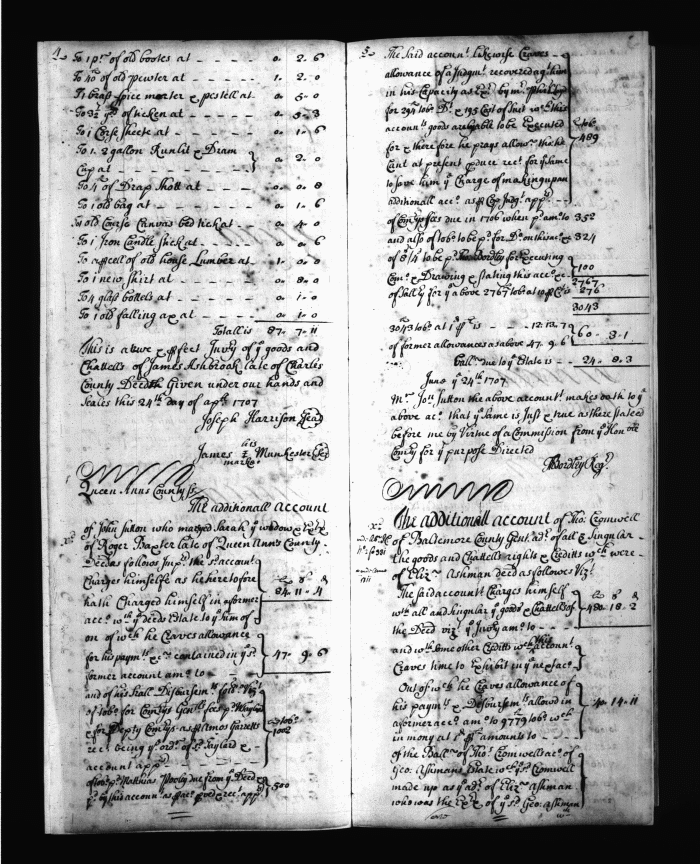 4
To 1 pr. of old bootes at 0. 2. 6
To 40 of old pewter at 1. 2. 0
To 1 brass spice morter & pestell at 0. 5. 0
To 3½ yds of ticken at 0. 5. 3
To 1 Corse sheete at 0. 1. 6
To 1. 2 gallon Runlit & Dram
Cup at 0. 2. 0
To 4 of Drap Shott at 0. 0. 8
To 1 old bag at 0. 1. 6
To 1 old Course Canvas bed tick at 0. 4. 0
To 1 Iron Candle stick at 0. 0. 6
To a pcell of old house Lumber at 1. 0. 0
To 1 new shirt at 0. 8. 0
To 4 glass bottels at 0. 1. 0
To 1 old falling ax at 0. 1. 0
Totall is 87. 7. 11
This is a true & pffect Invry of ye goods and
Chattells of James Ashbrook late of Charles
County Deced Given under our hands and
Seales this 24th day of apll 1707
Joseph Harrison Sead
his
James Munkester
marke
Queen Anns County ss
The additionall account
of John Sutton who married Sarah ye widow & Extx
of Roger Baxter late of Queen Ann's County
Deed as follows Imps. the sd. account
Charges himselfe as he heretofore
hath Charged himself in a former 84. 11. 4
acct. wth ye deeds Estate to ye sum of
on of wch he Craves allowance
for his paymts &c contained in ye sd. 47. 9. 6
former account amo. to
and of his Deputy
of tobo. for
& for Depty Comrys as Amos Garretts 1002
rect. being ye ord. of Taylard &
account
of tobo. pd. Matthias due from ye Deed 500
pd. by this account as

5
The Said account. Likewise Craves
allowance of a Judgmt. recovered agt. him
in his Capacity as Extr. by mr.
for 294 tobo. Dt. & 195 Cost of Suit wch this
account. goods are lyable to be Executed tob 489
for & therefore he prays allow. tho he
Cant at present pduce rect. for ye same
to save him ye Charge of making upon
additionall acct. as p Cop Judgt. appt.
of Comys fees due in 1706 when pd. amo. to 352
and also of tobo. to be pd. for Do. on this acct. 324
of 8/4 to be pd. Bordley for Executing
Comn. & Drawing & stating this acct. 100
2767
of Sally for ye above 2767 tobo. at 10 p Ct. is 276
3043
3043 tobo. at 1d p is 12. 13. 7
of former allowances as above 47. 9. 6 60. 3. 1
Ball. due to ye Estate is 24. 8. 3
June ye 24th 1707
Mr. Jon. Sutton the above account. makes oath to ye
above act. that ye same is Just & true as there stated
before me by Virtue of a Commission from ye Honble
Comry for ye purpose Directed
Bordley Regr.
The additionall account of Tho. Cromwell
of Baltemore County Gent. adr. of all & Singular
the goods and Chattells rights & Credits wch were
of Eliz. Ashman deed as followes Viz.
The said account Charges himself
wth all and singular ye goods & Chattells of 480. 18. 2
the Deed viz. ye Invry amo. to
and wth some other Credits wch account.
Craves time to Exhibit in ye next acct.
Out of wch he Craves allowance of
his paymt. & Disbursemt. allowd in 40. 14. 11
a former acct. amo. to 9779 tobo. wch
in mony at amounts to
of the Ball. of Tho. Cromwells act. of
Geo. Ashmans Estate wch ye sd. Cromwell
made up as adr. of Eliz. Ashman
who was the Extx. of ye sd. Geo. Ashman